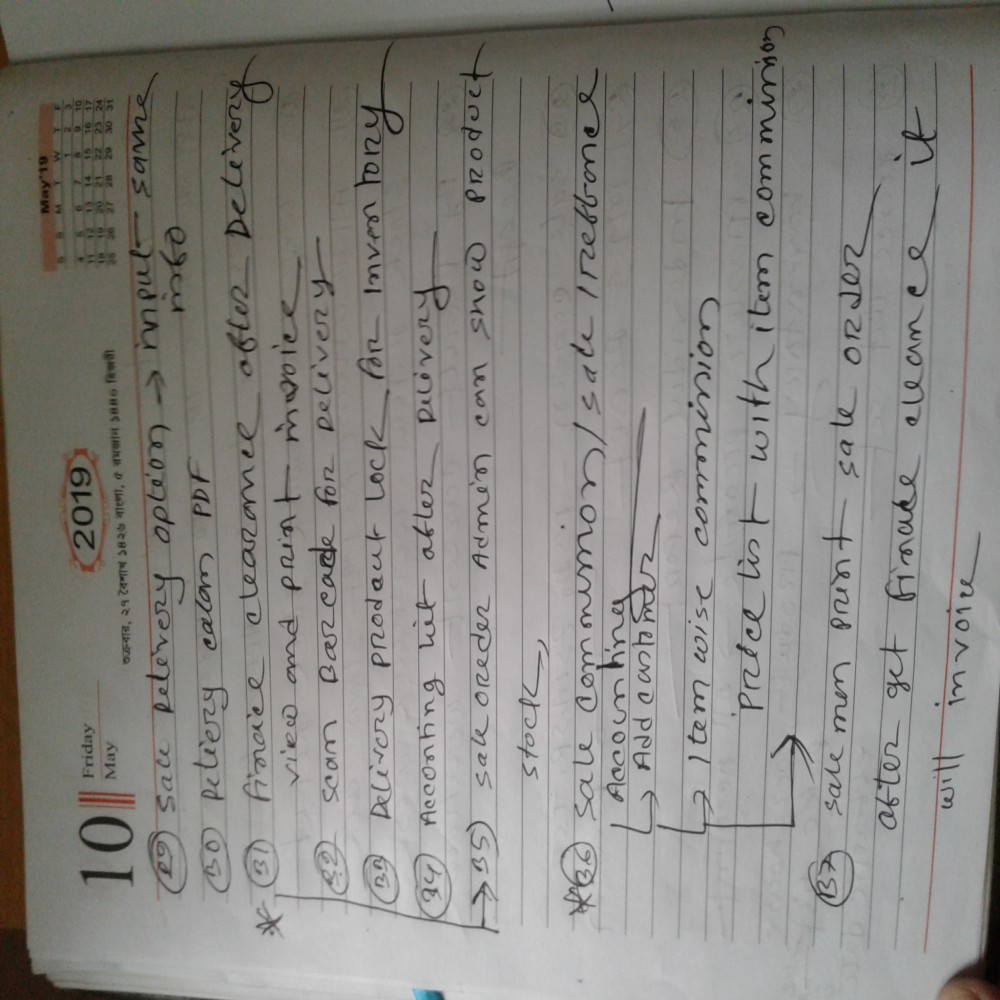 10
Friday
May
2019
শুক্রবার, ২৭ বৈশাখ ১৪২৬ বাংলা, ৫ রমজান ১৪৪০ হিজরী
May'19
S S M T W T F
1 2 3
4 5 6 7 8 9 10
11 12 13 14 15 16 17
18 19 20 21 22 23 24
25 26 27 28 29 30 31
29 Sale Delevery option → input same
info
30 Deliery calan PDF
* 31 Finace clearance after Delivery
view and print invoice
32 scan Barcade for Delivery
33 Delivery prodcut Lock for Inventory
34 Acconting hit after Delivery
→ 35) Sale oreder Admin can show product
stock,
* 36 Sale commision/sale
Accounting
↳ Add customer
↳ Item wise commission
Price list with item commision
37 Sale men print sale order
after get finace clearance it
will invoice